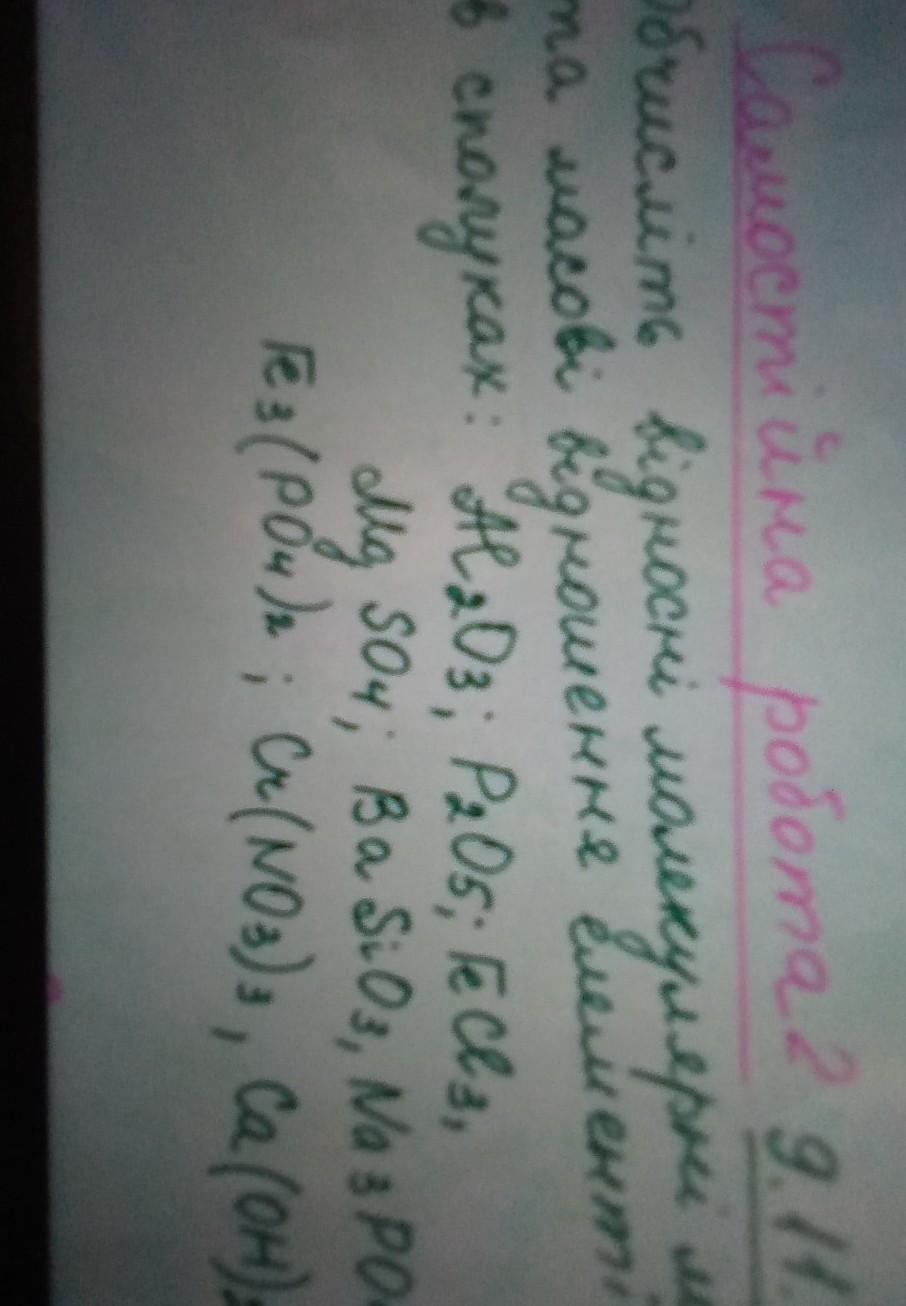 Самостійна робота 2 9.11.
Обчисліть відносні молекулярні м
та масові відношення елементі
в сполуках: Al2O3; P2O5; FeCl3,
MgSO4; BaSiO3, Na3PO
Fe3(PO4)2; Cr(NO3)3, Ca(OH)2